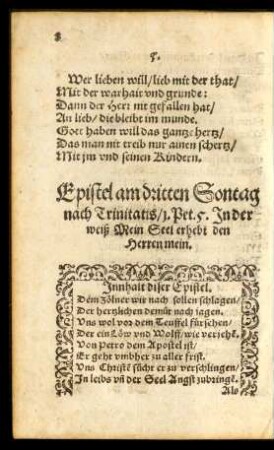 5.
Wer lieben will/lieb mit der that/
Mit der warhait vnd grunde:
Dann der Herr nit gefallen hat/
An lieb/ die bleibt im munde.
Gott haben will das gantze hertz/
Das man nit treib nur ainen schertz/
Mit jm vnd seinen Kindern.
Epistel am dritten Sontag
nach Trinitatis/1. Pet. 5. In der
weiß Mein Seel erhebt den
Herren mein.
Innhalt diser Epistel.
Dem Zölner wir nach sollen schlagen/
Der hertzlichen demůt nach jagen.
Vns wol vor dem Teuffel fürsehen/
Der ein Löw vnd Wolff/ wie
Von Petro dem Apostel ist/
Er geht vmbher zu aller frist.
Vns Christē sůcht er zu verschlingen/
In leids vñ der Seel Angst zubringē.
Als